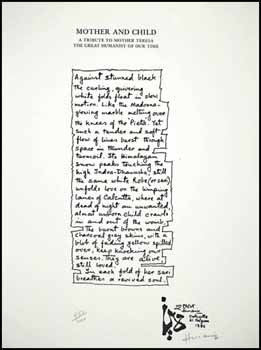 MOTHER AND CHILD
A TRIBUTE TO MOTHER TERESA
THE GREAT HUMANIST OF OUR TIME
Against stunned black
the curling, quivering
white folds float in slow
motion. Like the Madonna-
glowing marble melting over
the knees of the Pieta. Yet
such a tender and soft
flow of lines burst through
space in thunder and
turmoil. Its Himalayan
snow peaks touching the
high Indra-Dhanush. Still
the same white Robe (or sari)
unfolds love on the limping
lanes of Calcutta, where at
dead of night an unwanted,
almost unborn child crawls
in and out of the womb,
The burnt browns and
charcoal grey skins, with a
blot of fading yellow spilled
over, keep knocking our
senses. They are alive,
still loved.
In each fold of her sari
breathes a revived soul.
Calcutta
Husain